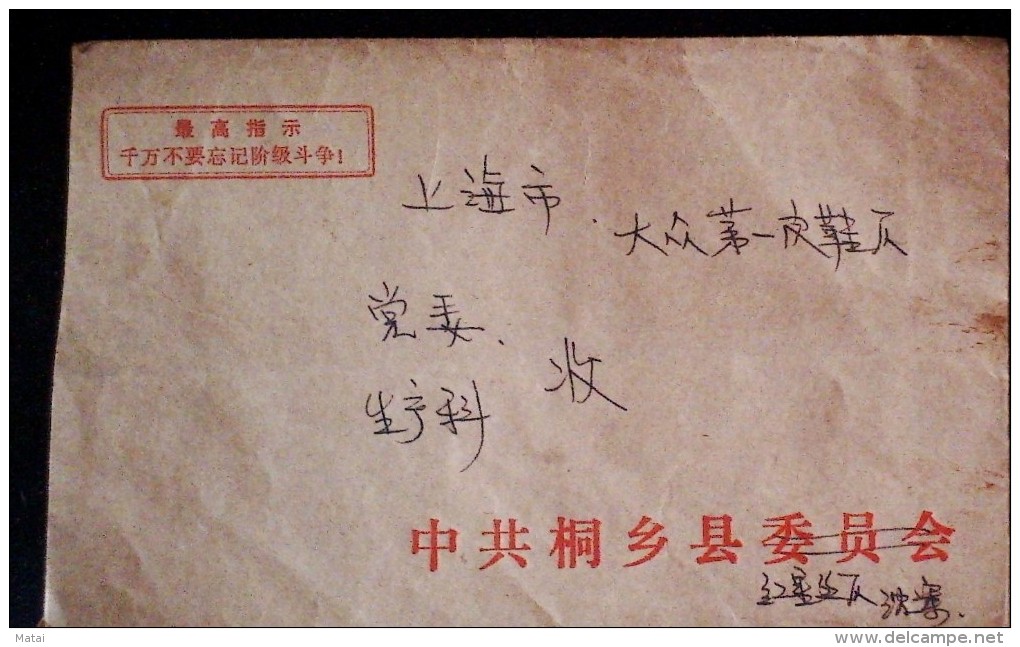 最高指示
千万不要忘记阶级斗争!
上海市.
大众第一皮鞋厂
党委、
生产科
收
中共桐乡县委员会
红星丝厂
Matai
www.delcampe.net